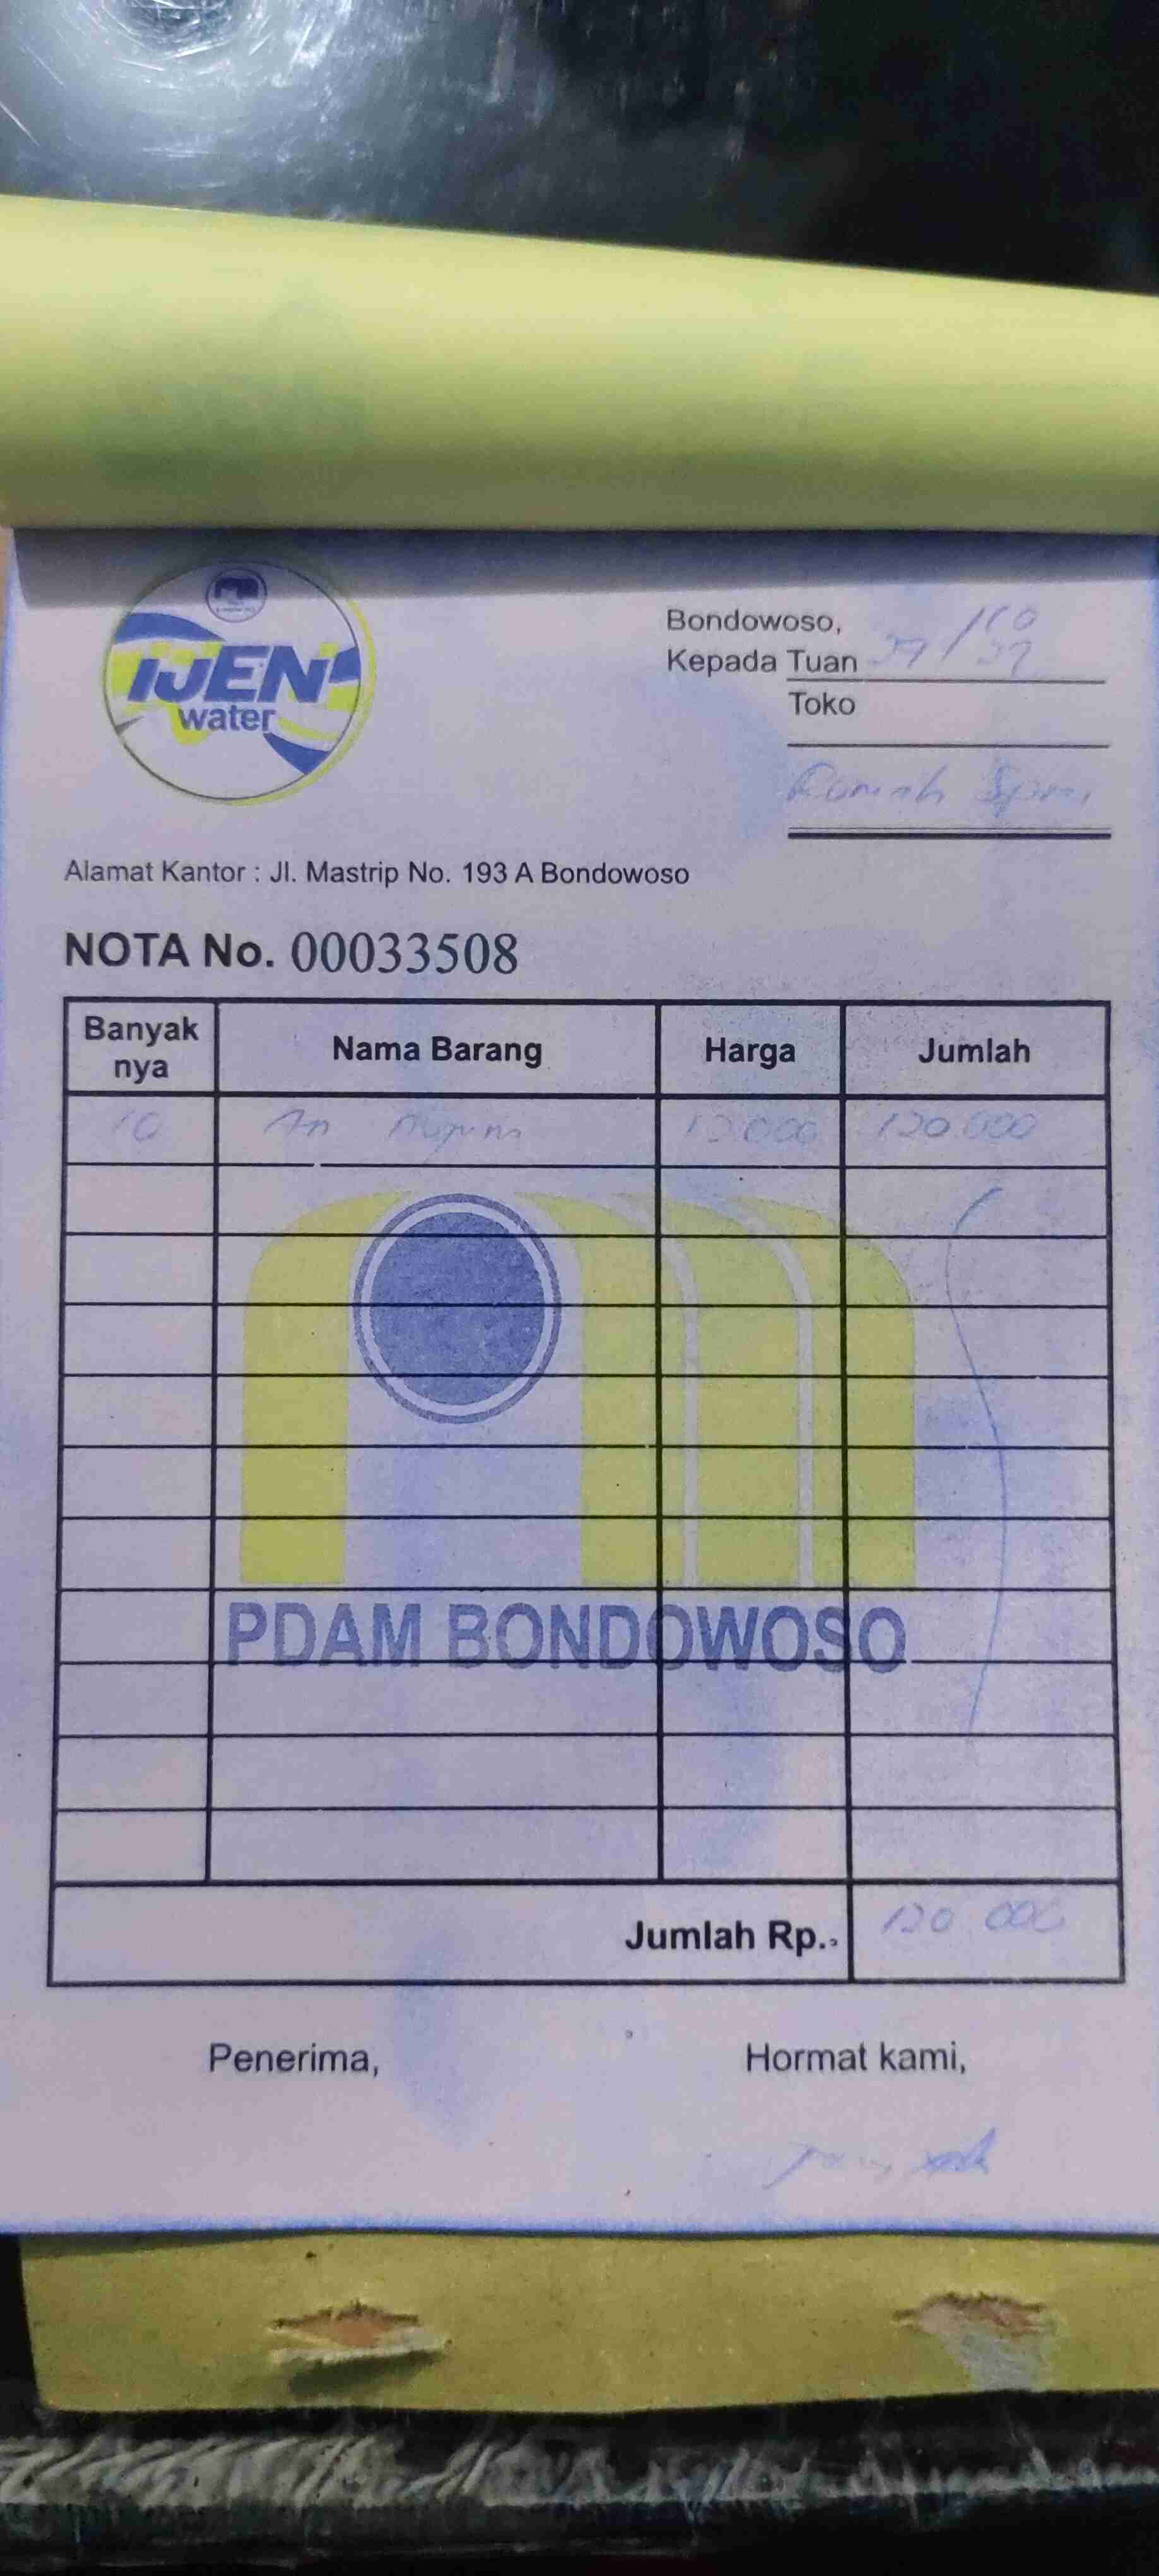 IJEN
water
Bondowoso,
Kepada Tuan
Toko
Rumah
Alamat Kantor : Jl. Mastrip No. 193 A Bondowoso
NOTA No. 00033508
Banyak nya Nama Barang Harga Jumlah
10 12.000 120.000
PDAM BONDOWOSO
Jumlah Rp. 120.000
Penerima, Hormat kami,